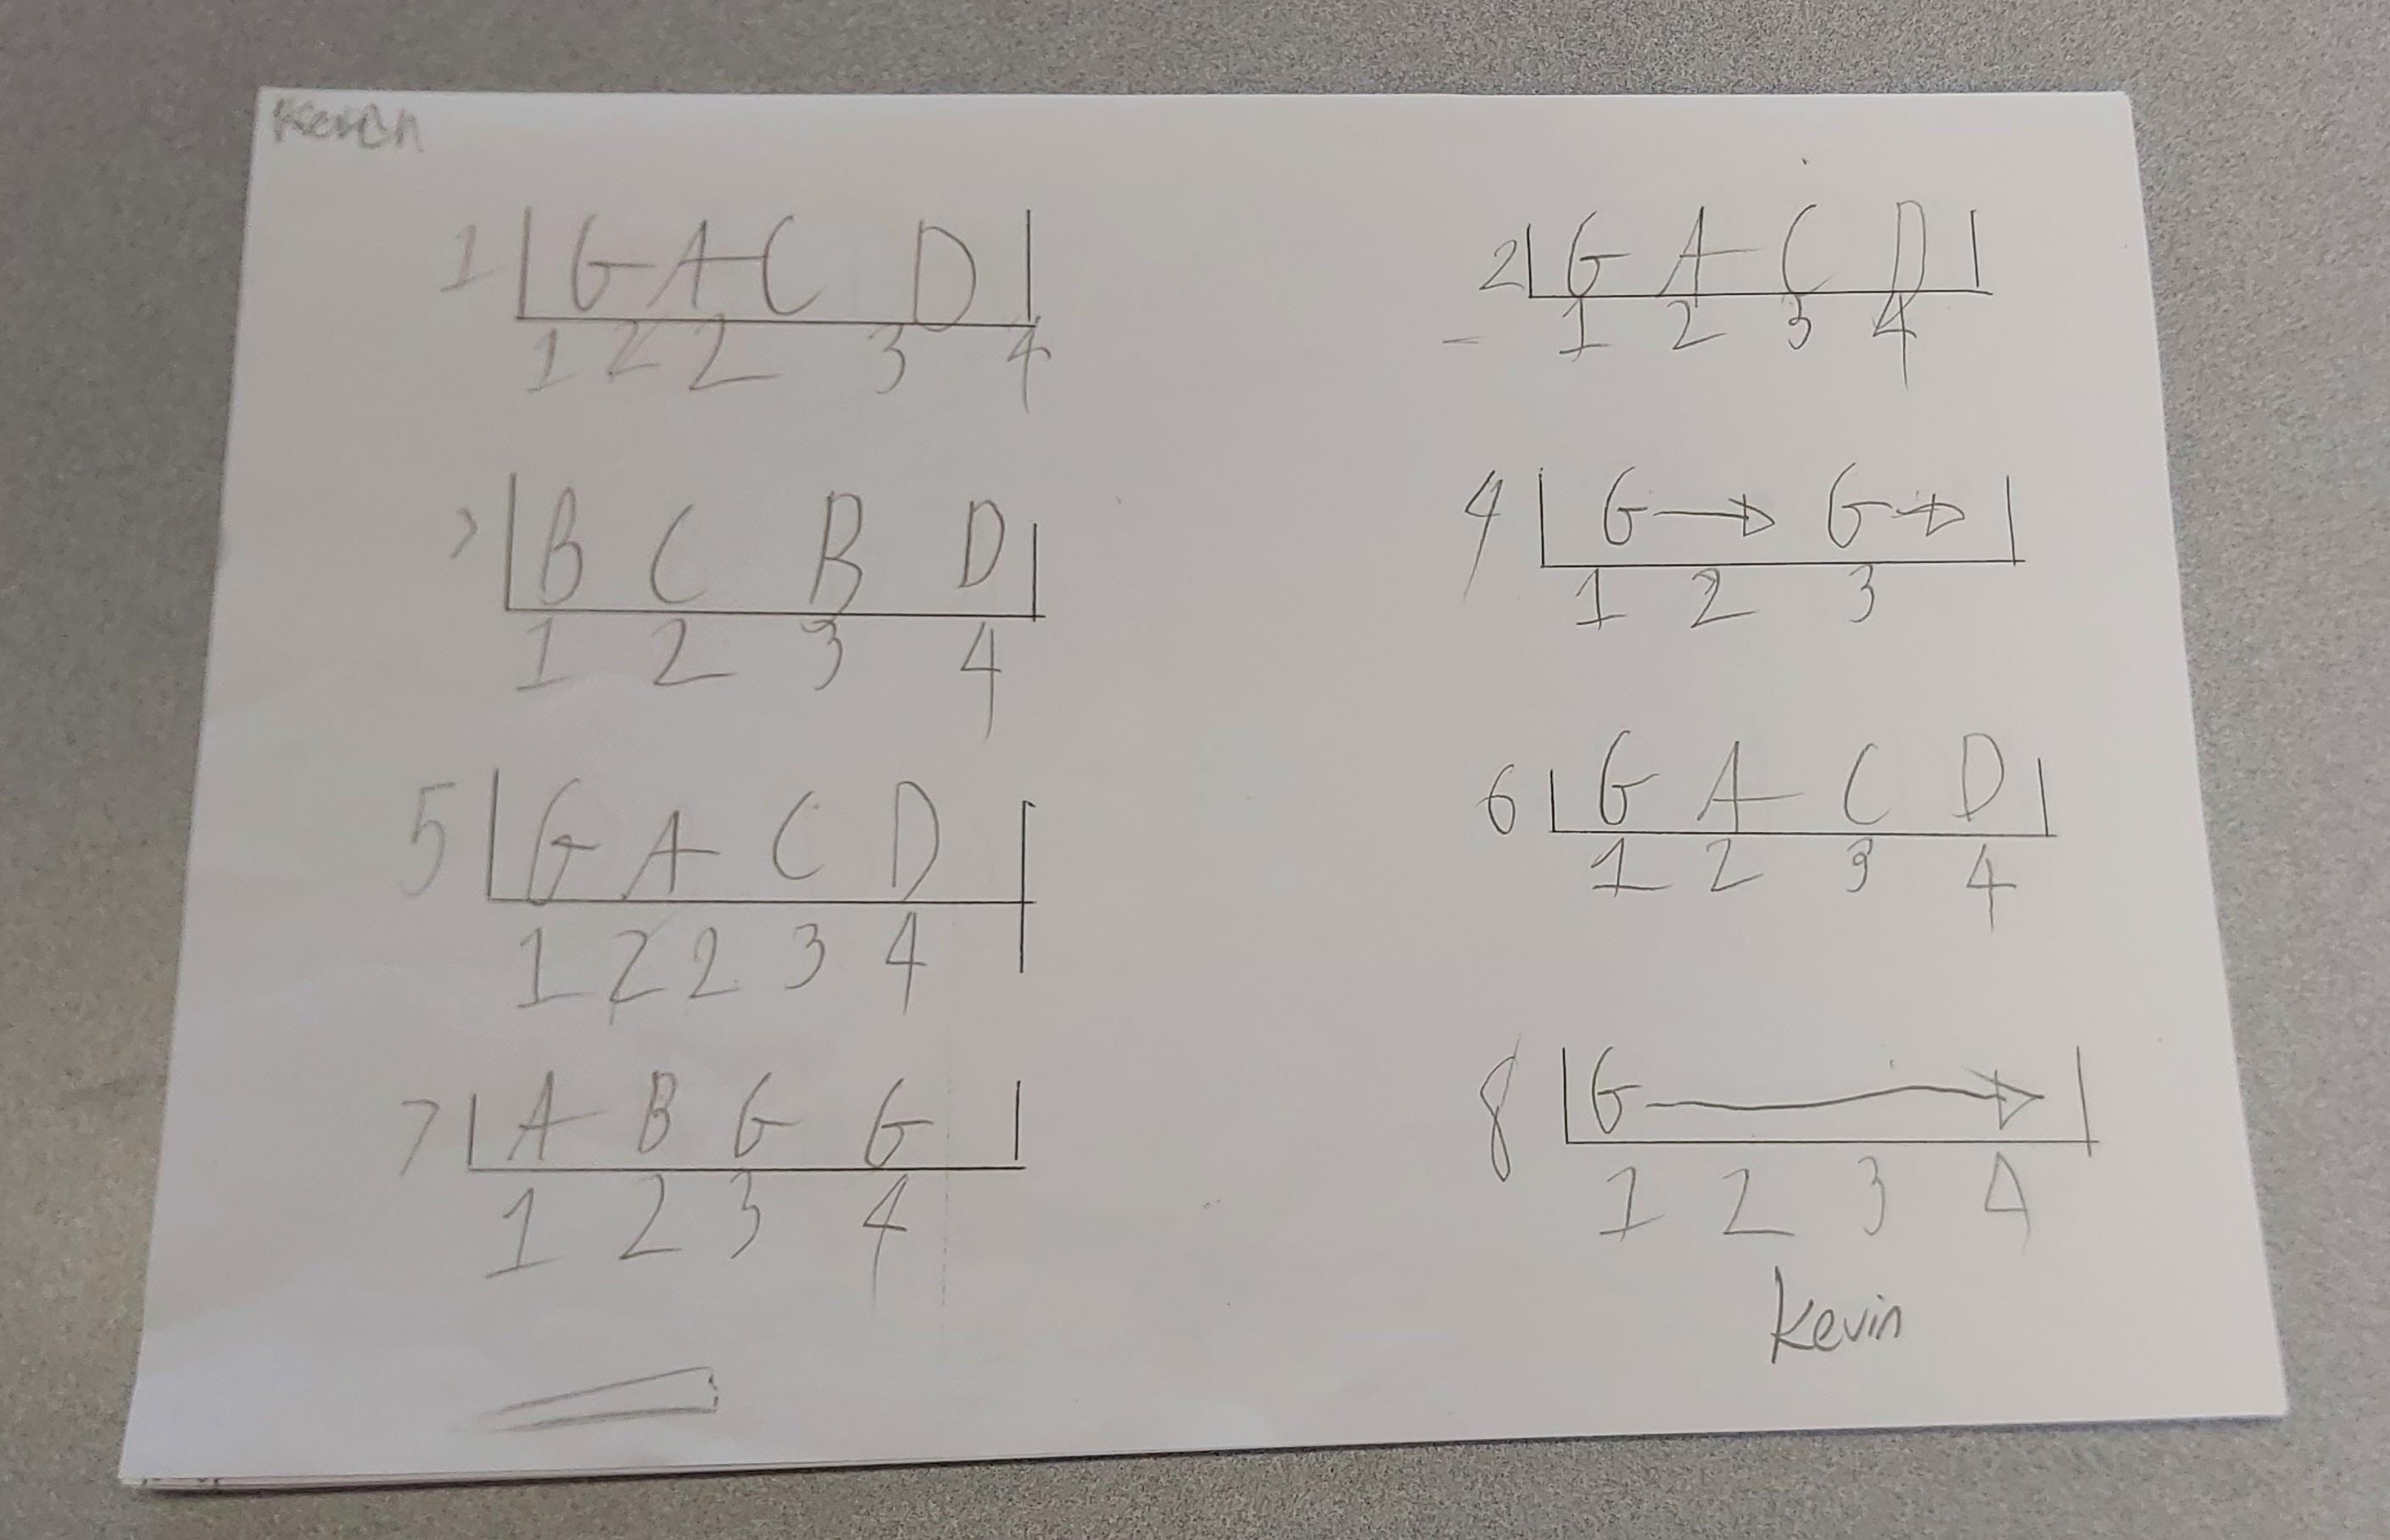 Kevin
1 | G A C D |
1 2 2 3 4
2 | G A C D |
1 2 3 4
| B C B D |
1 2 3 4
4 | G → G → |
1 2 3
5 | G A C D |
1 2 2 3 4
6 | G A C D |
1 2 3 4
7 | A B G G |
1 2 3 4
8 | G → |
1 2 3 4
Kevin